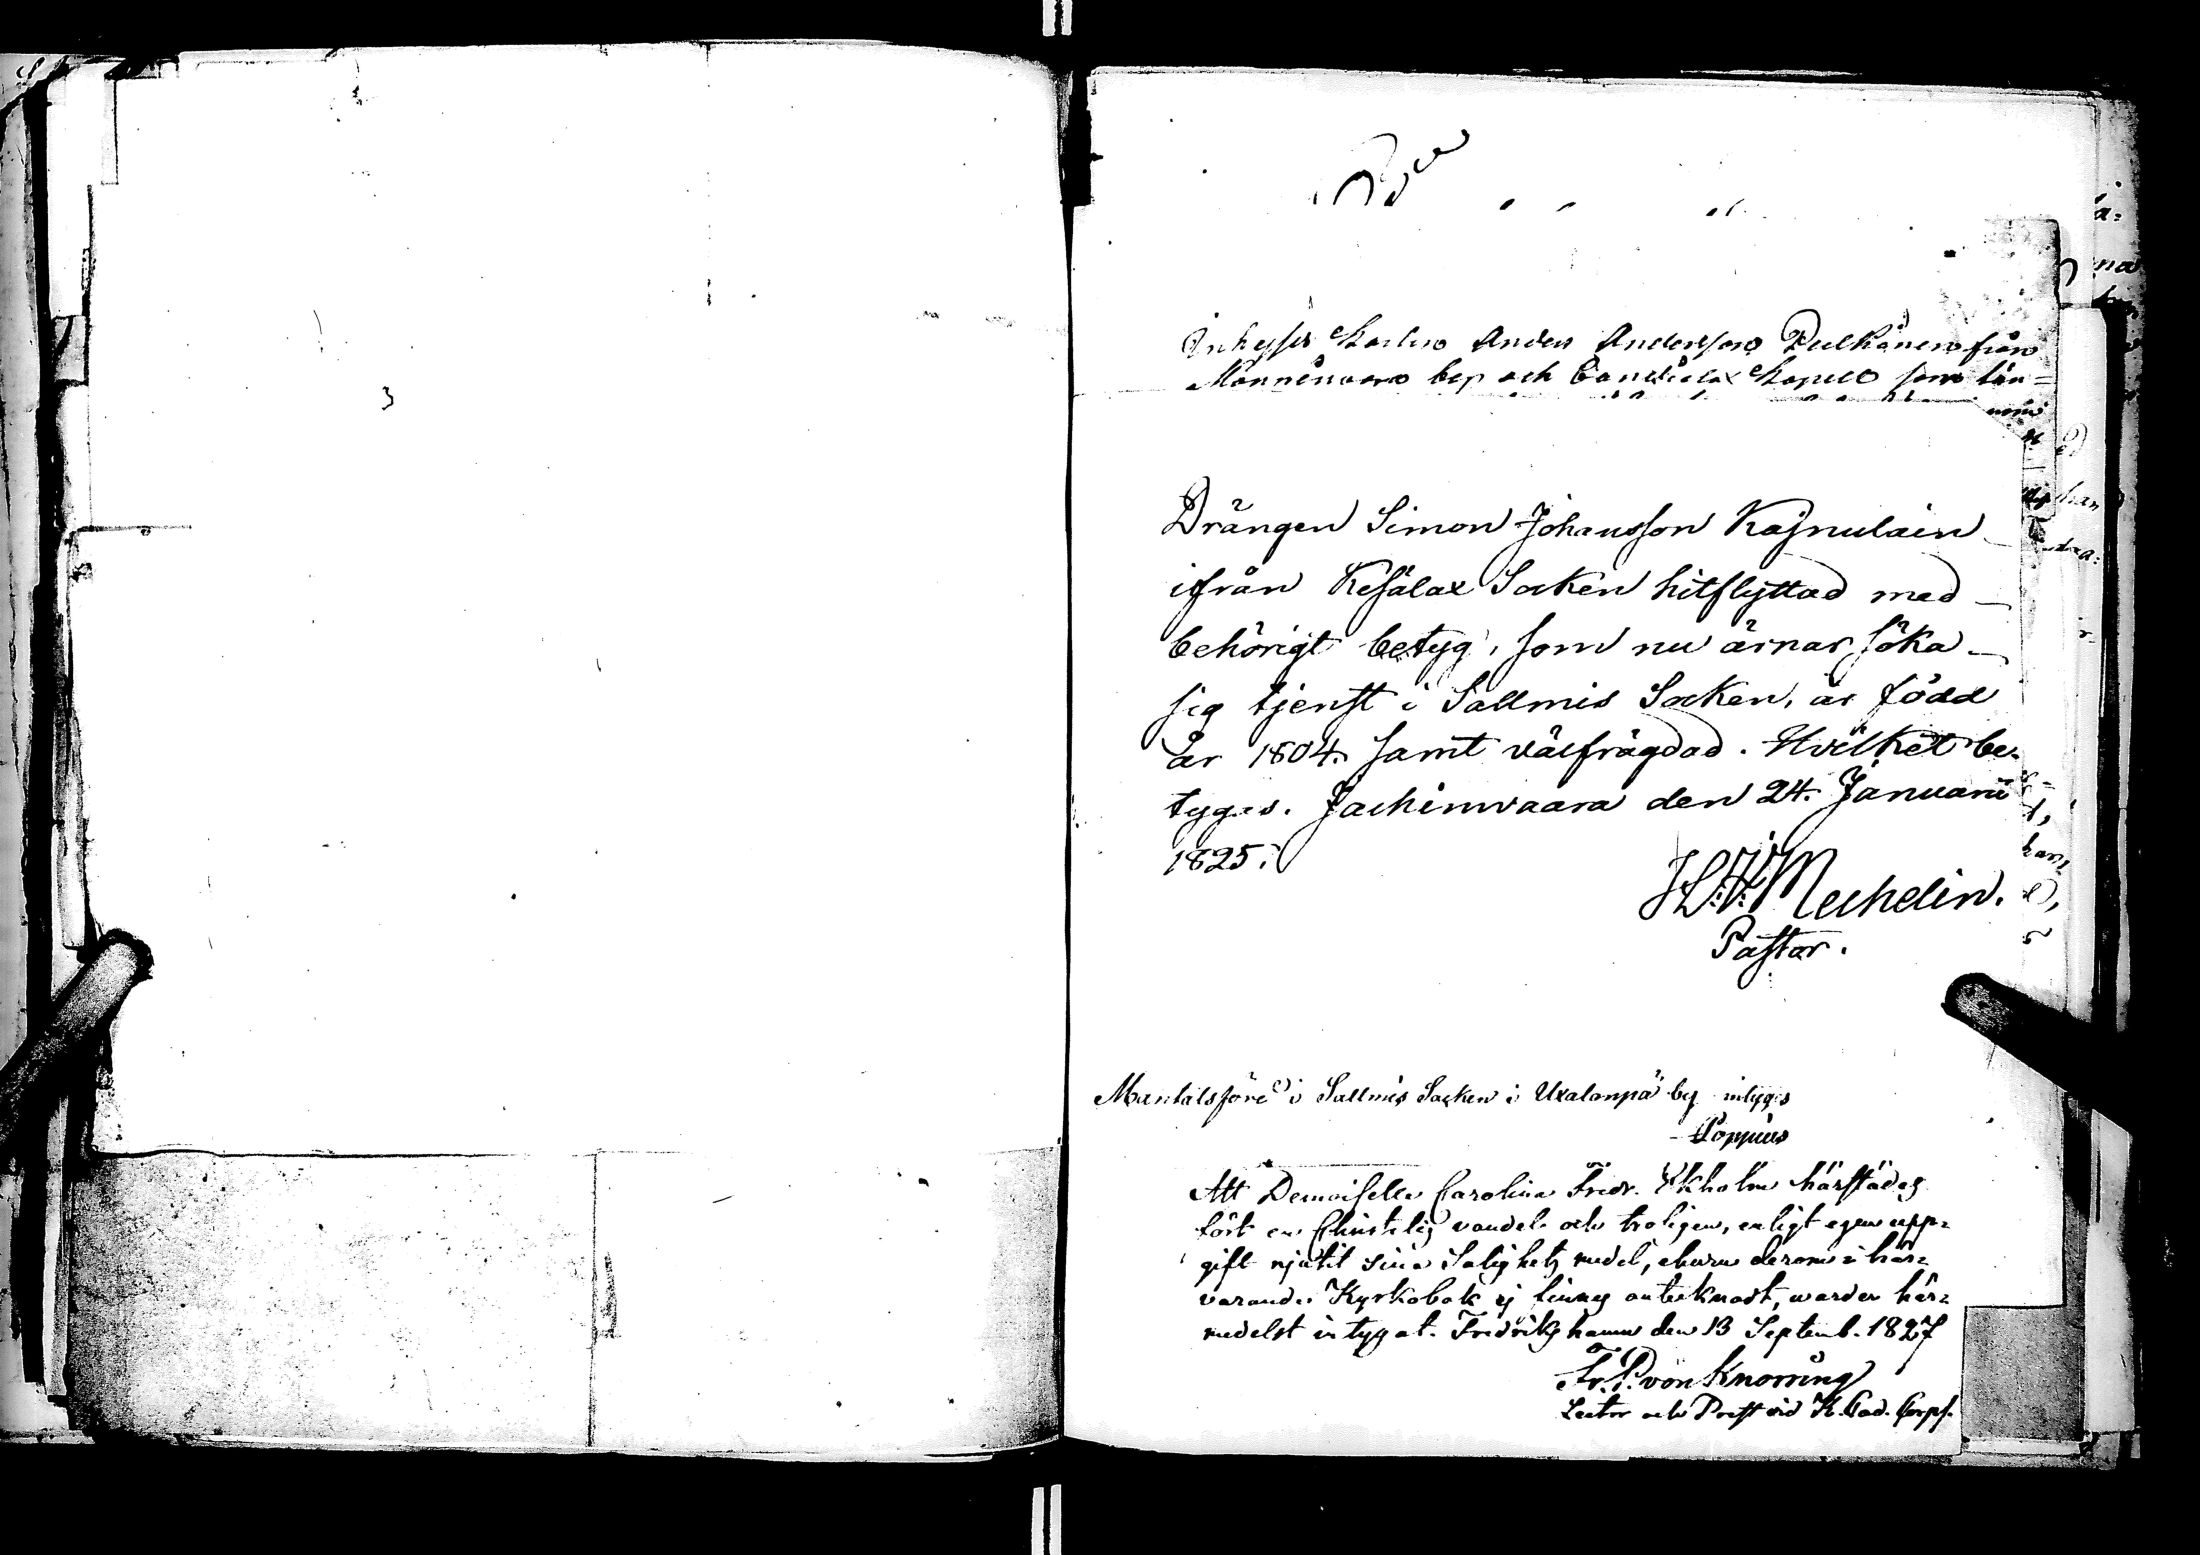 Inhyses Karlen Anders Andersson Pulkänen från
by och Kapell som
Drängen Simon Johansson Kajnulain
ifrån Kesälax Socken hitflyttad med
behörigt betyg, som nu ärnar söka
sig tjenst i Sallmis Socken, är född
år 1804. samt välfrägdad. Hvilket be-
tygas. Jackimvaara den 24. Januarii
1825.
Mechelin.
Pastor.
Mantalsförd i Sallmis Socken i Uxalanpä by intygas
Poppius
Att Demoiselle Carolina Fredr. Ekholm härstädes
fört en Christelig vandel och troligen, enligt egen upp=
gift njutit sina Salighets medel, ehuru derom i här=
varande Kyrkobok ej finnes anteknadt, warder här=
medelst intygat. Fredrikshamn den 13 Septemb. 1827
Fr. P. von Knorring
Lector och Præst vid K. Cad. Corps.